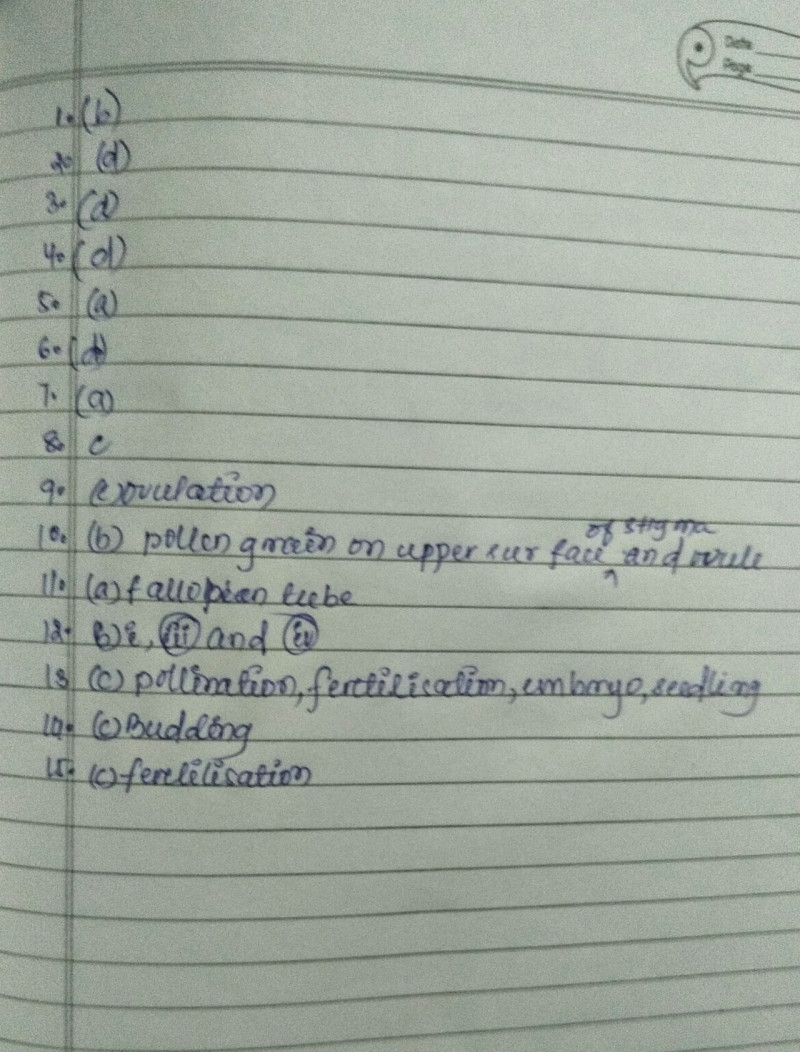 Date
Page
1. (b)
2. (d)
3. (d)
4. (d)
5. (a)
6. (d)
7. (a)
8. c
9. (c) ovulation
10. (b) pollen grain on upper surface of stigma and ovule
11. (a) fallopian tube
12. b) i, iii and iv
13 (c) pollination, fertilisation, embryo, seedling
14. (c) Budding
15. (c) fertilisation